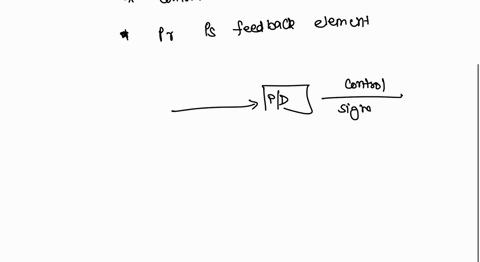 * Pr Ps feedback element
P|D
control
signa